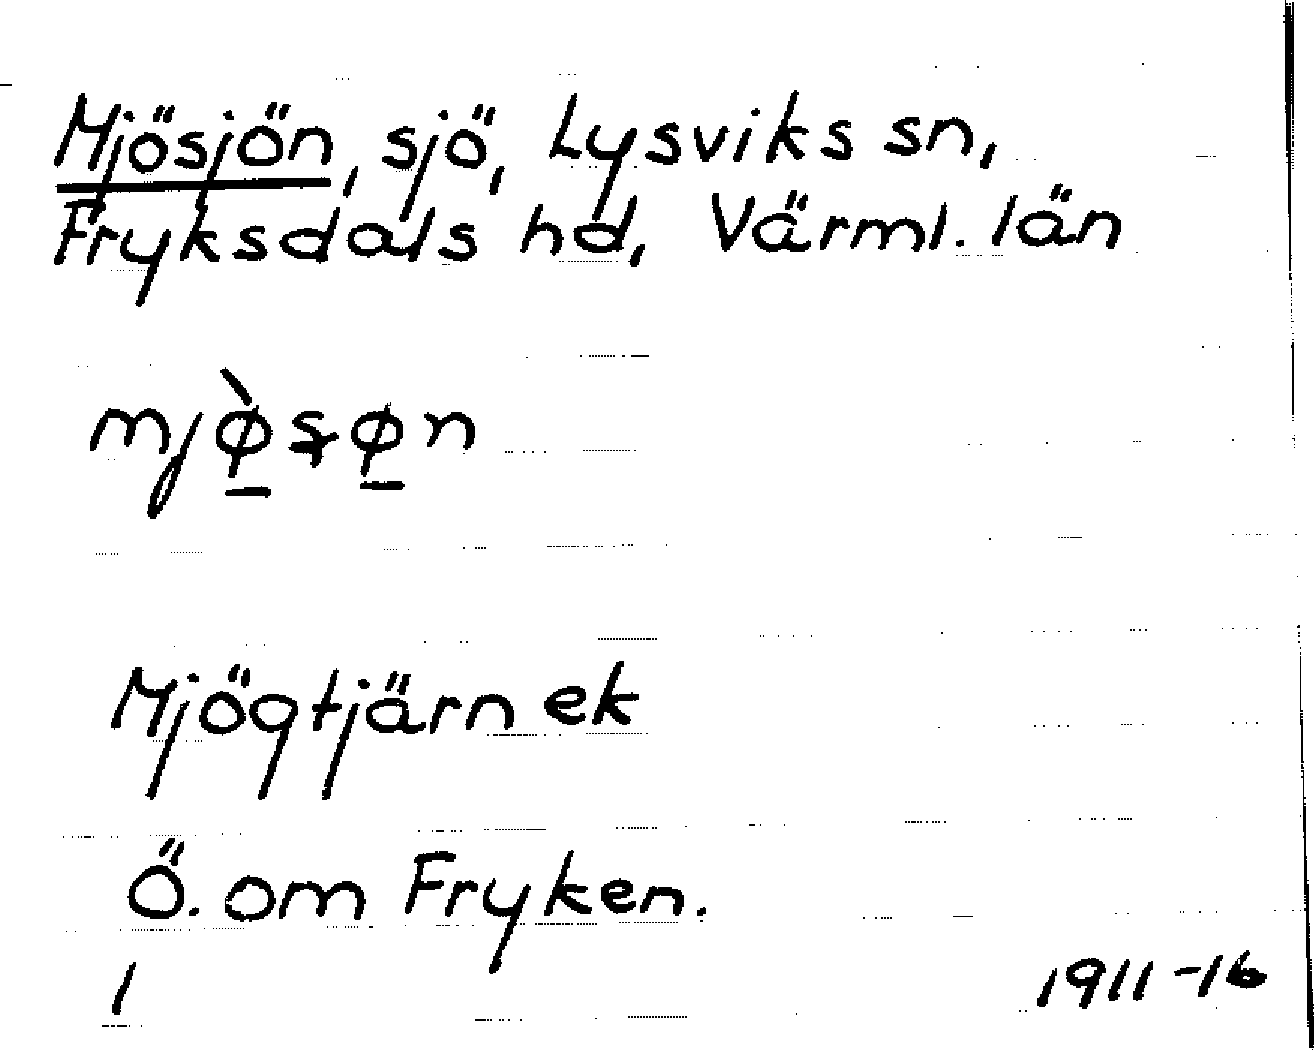 Mjösjön, sjö, Lysviks sn,
Fryksdals hd, Värml. län
Mjögtjärn ek
Ö. om Fryken.
1 1911-16